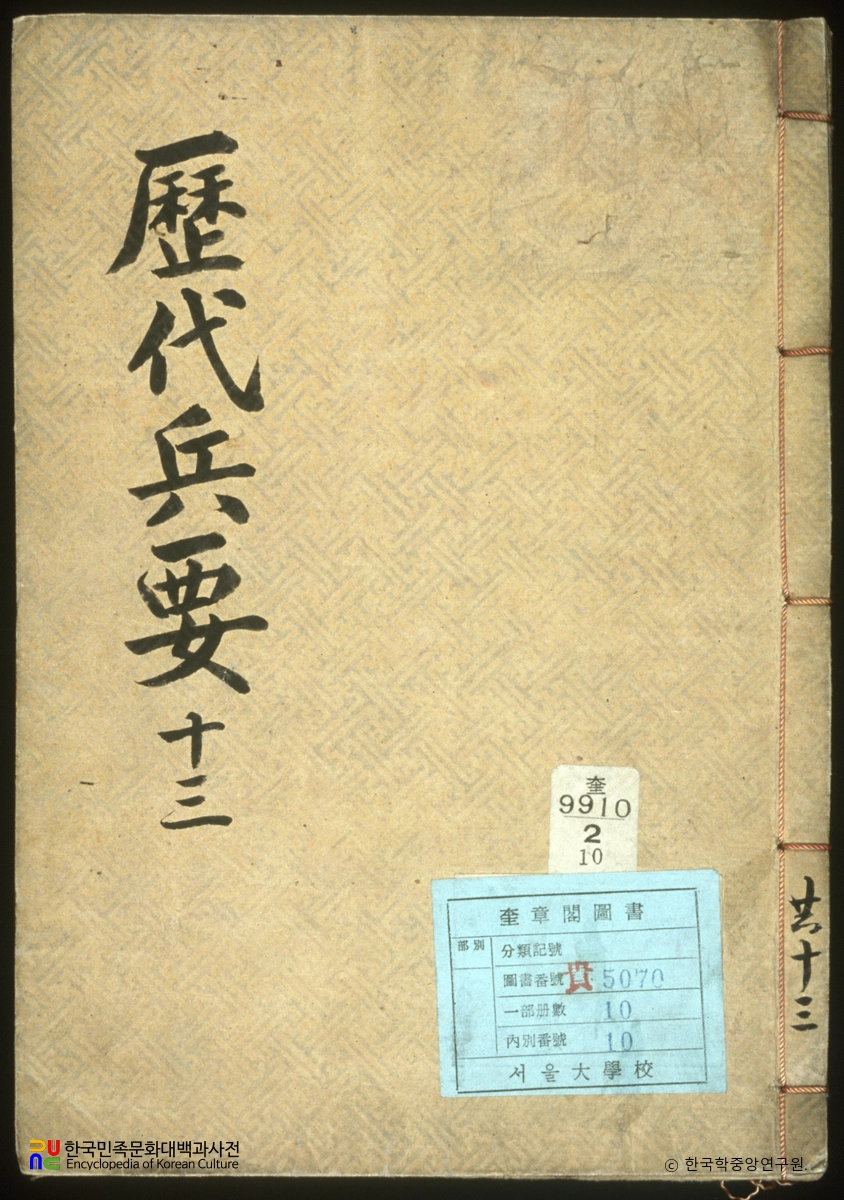 歷代兵要 十三
共十三
奎
9910
2
10
奎章閣圖書
部別
分類記號
圖書番號 貴 5070
一部册數 10
內別番號 10
서울大學校
한국민족문화대백과사전
Encyclopedia of Korean Culture
© 한국학중앙연구원.